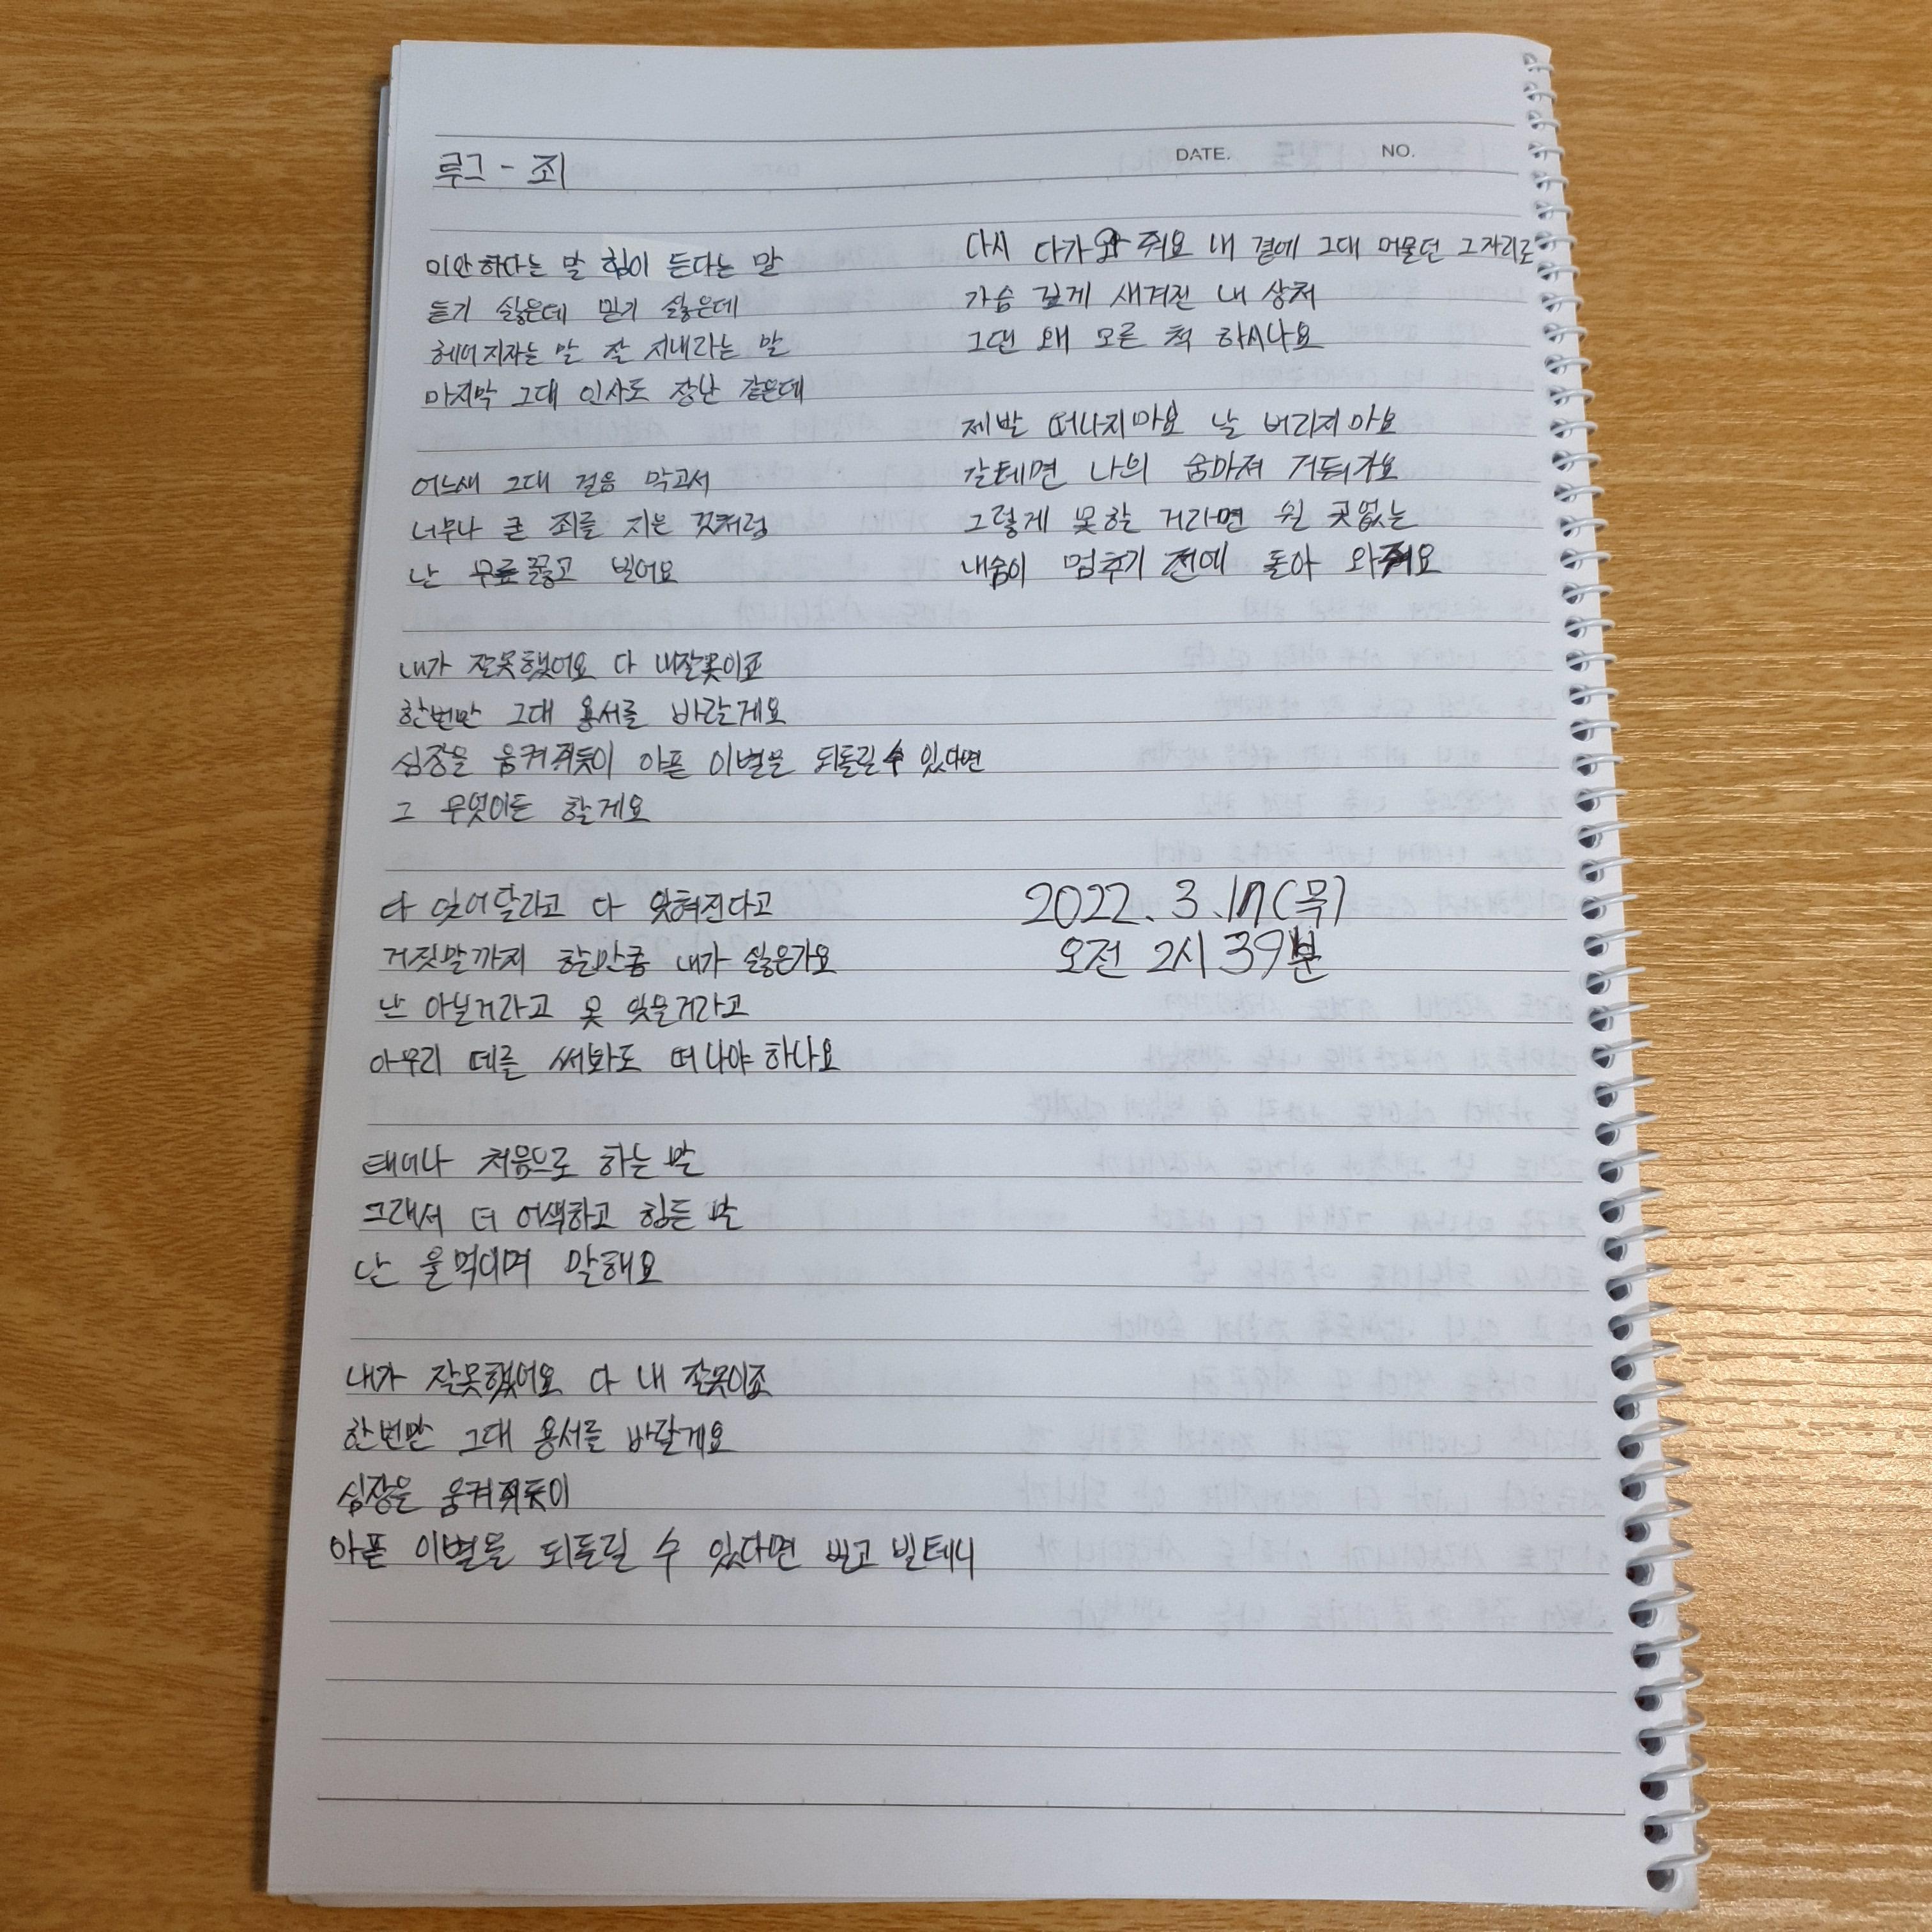 루그 - 죄
DATE. NO.
미안하다는 말 힘이 든다는 말
듣기 싫은데 믿기 싫은데
헤어지자는 말 잘 지내라는 말
마지막 그대 인사도 장난 같은데
어느새 그대 걸음 막고서
너무나 큰 죄를 지은 것처럼
난 무릎 꿇고 빌어요
내가 잘못했어요 다 내잘못이죠
한번만 그대 용서를 바랄게요
심장을 움켜쥐듯이 아픈 이별을 되돌릴 수 있다면
그 무엇이든 할게요
다 잊어달라고 다 잊혀진다고
거짓말까지 할만큼 내가 싫은가요
난 아닐거라고 못 잊을거라고
아무리 떼를 써봐도 떠나야 하나요
태어나 처음으로 하는 말
그래서 더 어색하고 힘든 말
난 울먹이며 말해요
내가 잘못했어요 다 내 잘못이죠
한번만 그대 용서를 바랄게요
심장을 움켜쥐듯이
아픈 이별을 되돌릴 수 있다면 빌고 빌테니
다시 다가와 줘요 내 곁에 그대 머물던 그자리로
가슴 깊게 새겨진 내 상처
그댄 왜 모른 척 하시나요
제발 떠나지마요 날 버리지마요
갈테면 나의 숨마져 거둬가요
그렇게 못할 거라면 쉴 곳없는
내숨이 멈추기 전에 돌아 와줘요
2022. 3. 17(목)
오전 2시 39분